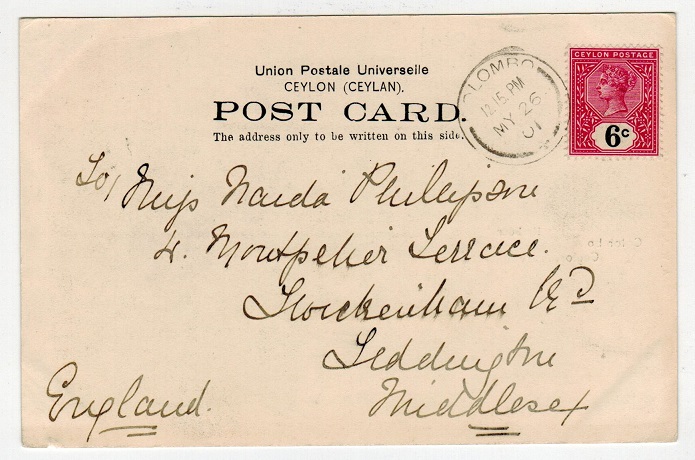 Union Postale Universelle
CEYLON (CEYLAN).
POST CARD.
The address only to be written on this side.
COLOMBO
12.15.PM
MY 26
01
CEYLON POSTAGE
6c
To/ Miss Naida Phillipson
4. Montpelier Terrace.
Twickenham Rd
Teddington
Middlesex
England.